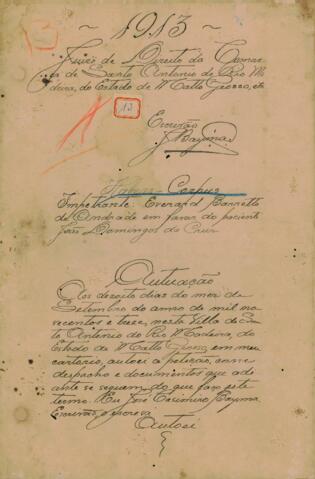 ~ 1913 ~
Juizo de Direito da Comar-
ca de Santo Antonio do Rio Ma-
deira, do Estado de Matto Grosso, etc
13
Escrivão
Habeas-Corpus
Impetrante Everard Barretto
de Andrade em favor do paciente
João Domingos da Cruz
Autuação
Aos dezoito dias do mez de
Setembro do anno de mil no-
vecentos e treze, nesta Villa de San-
to Antonio do Rio Madeira, do
Estado de Matto Grosso em meu
cartorio, autoei a petição, com
despacho e documentos que ade-
ante se seguem, do que faço este
termo. Eu José Casimiro Bayma
Escrivão o escrevi
Autoei